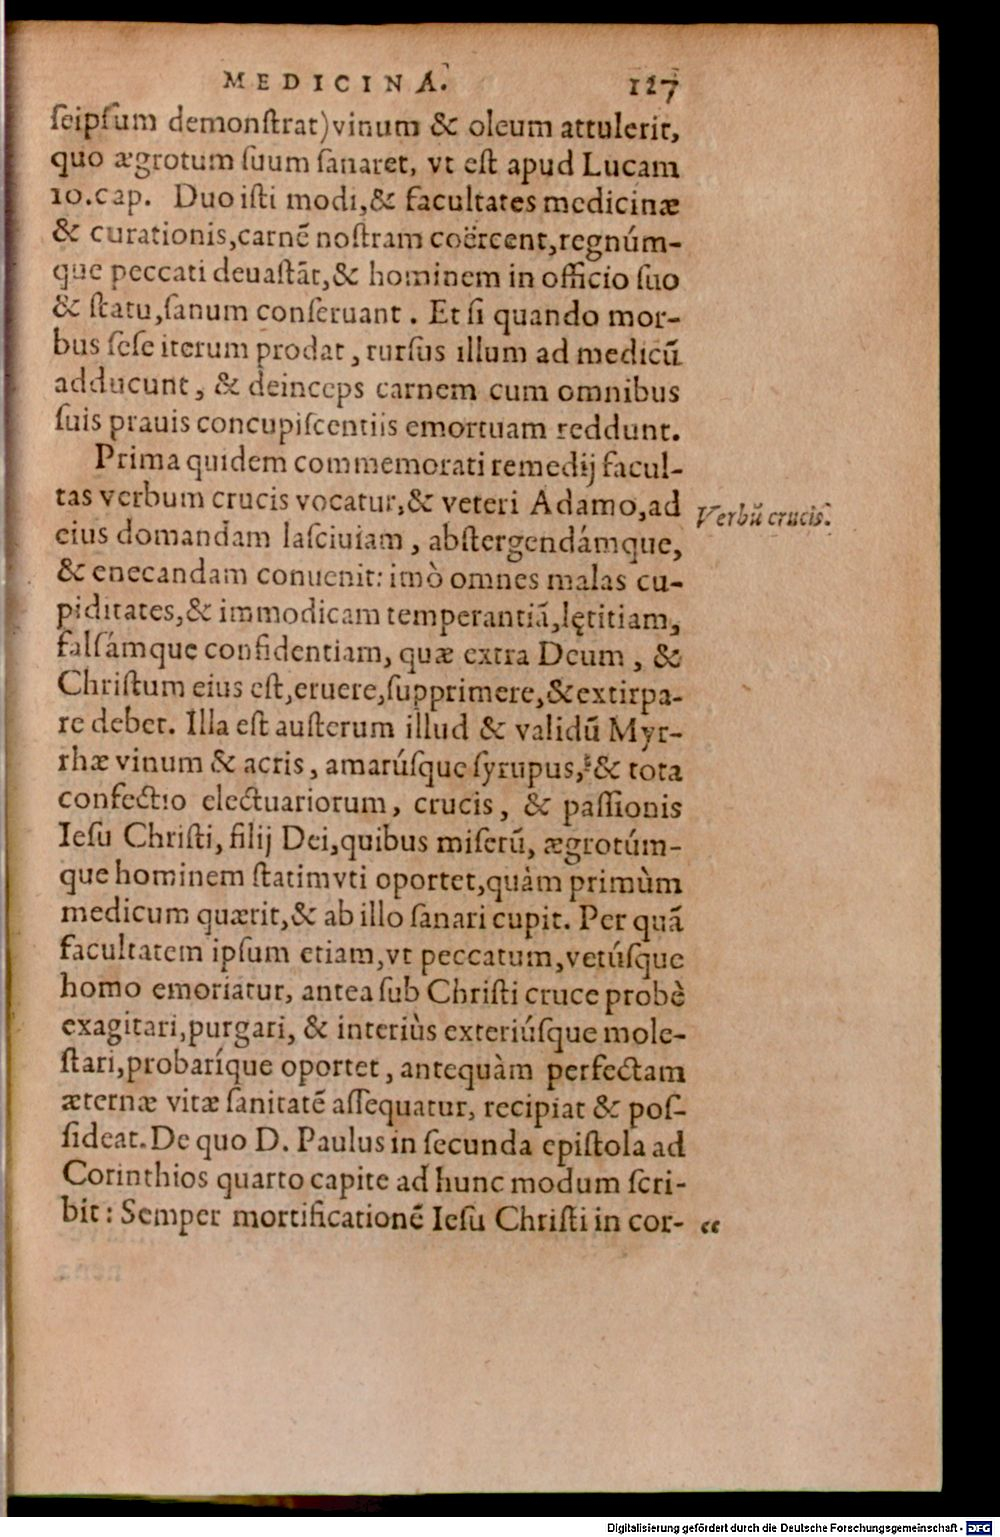 MEDICINA. 127
ſeipſum demonſtrat) vinum & oleum attulerit,
quo ægrotum ſuum ſanaret, vt eſt apud Lucam
10.cap. Duo iſti modi,& facultates medicinæ
& curationis,carnē noſtram coërcent,regnúm-
que peccati deuaſtāt,& hominem in officio ſuo
& ſtatu,ſanum conſeruant . Et ſi quando mor-
bus ſeſe iterum prodat , rurſus illum ad medicū
adducunt , & deinceps carnem cum omnibus
ſuis prauis concupiſcentiis emortuam reddunt.
Prima quidem commemorati remedij facul-
tas verbum crucis vocatur,& veteri Adamo,ad
Verbū crucis.
eius domandam laſciuiam , abſtergendámque,
& enecandam conuenit: imò omnes malas cu-
piditates,& immodicam temperantiā,lętitiam,
falſámque confidentiam, quæ extra Deum , &
Chriſtum eius eſt,eruere,ſupprimere,& extirpa-
re debet. Illa eſt auſterum illud & validū Myr-
rhæ vinum & acris , amarúſque ſyrupus, & tota
confectio electuariorum, crucis, & paſſionis
Ieſu Chriſti, filij Dei,quibus miſerū, ægrotúm-
que hominem ſtatim vti oportet,quàm primùm
medicum quærit,& ab illo ſanari cupit. Per quā
facultatem ipſum etiam,vt peccatum,vetúſque
homo emoriatur, antea ſub Chriſti cruce probè
exagitari,purgari, & interiùs exteriúſque mole-
ſtari,probaríque oportet , antequàm perfectam
æternæ vitæ ſanitatē aſſequatur, recipiat & poſ-
ſideat. De quo D. Paulus in ſecunda epiſtola ad
Corinthios quarto capite ad hunc modum ſcri-
bit : Semper mortificationē Ieſu Chriſti in cor- “
Digitalisierung gefördert durch die Deutsche Forschungsgemeinschaft - DFG